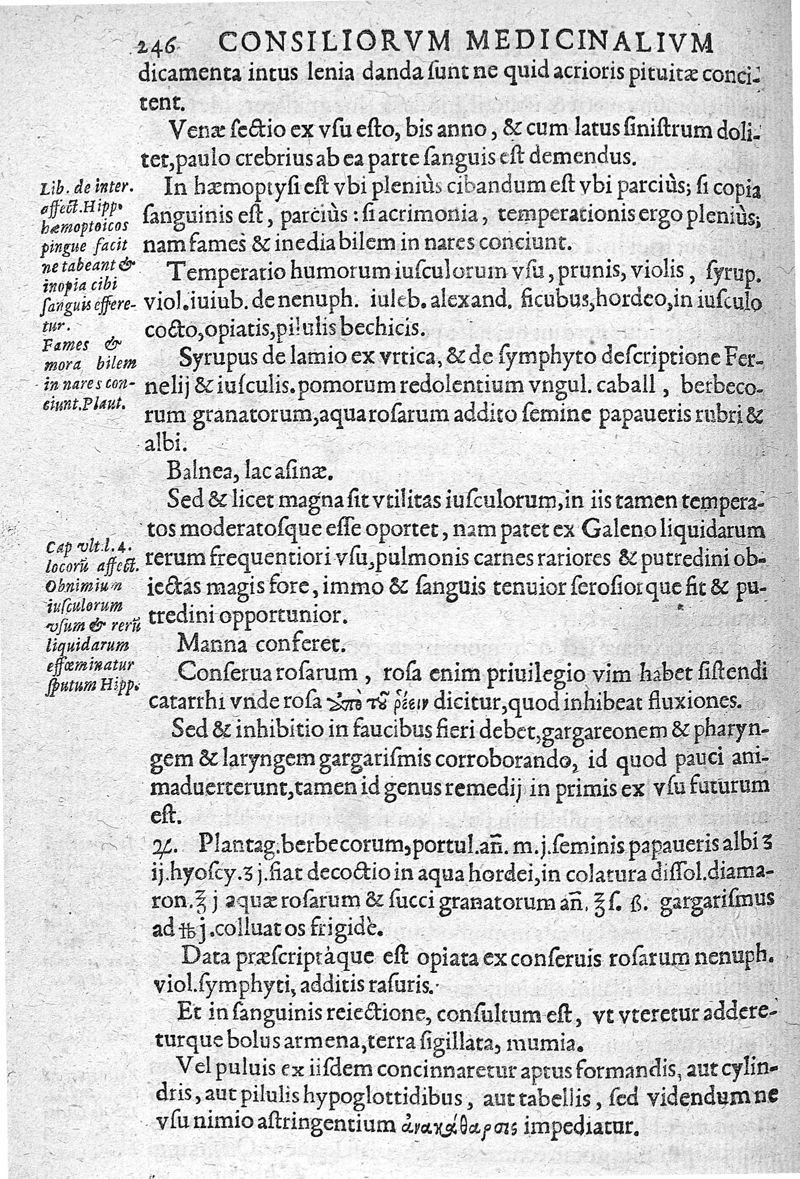 246 CONSILIORVM MEDICINALIVM
dicamenta intus lenia danda ſunt ne quid acrioris pituitæ conci-
tent.
Venæ ſectio ex vſu eſto, bis anno, & cum latus ſiniſtrum doli-
tet, paulo crebrius ab ea parte ſanguis eſt demendus.
In hæmoptyſi eſt vbi pleniùs cibandum eſt vbi parciùs; ſi copia
ſanguinis eſt, parciùs: ſi acrimonia, temperationis ergo pleniùs;
nam fames & inedia bilem in nares conciunt.
Lib. de inter.
affect. Hipp.
hæmoptoicos
pingue facit
ne tabeant &
inopia cibi
ſanguis effere-
tur.
Fames &
mora bilem
in nares con-
ciunt. Plaut.
Temperatio humorum iuſculorum vſu, prunis, violis, ſyrup.
viol. iuiub. de nenuph. iuleb. alexand. ficubus, hordeo, in iuſculo
cocto, opiatis, pilulis bechicis.
Syrupus de lamio ex vrtica, & de ſymphyto deſcriptione Fer-
nelij & iuſculis. pomorum redolentium vngul. caball, berbeco-
rum granatorum, aqua roſarum addito ſemine papaueris rubri &
albi.
Balnea, lac aſinæ.
Sed & licet magna ſit vtilitas iuſculorum, in iis tamen tempera-
tos moderatoſque eſſe oportet, nam patet ex Galeno liquidarum
rerum frequentiori vſu, pulmonis carnes rariores & putredini ob-
iectas magis fore, immo & ſanguis tenuior ſeroſior que fit & pu-
tredini opportunior.
Cap vlt. l. 4.
locorũ affect.
Ob nimium
iuſculorum
vſum & rerũ
liquidarum
effœminatur
ſputum Hipp.
Manna conferet.
Conſerua roſarum, roſa enim priuilegio vim habet ſiſtendi
catarrhi vnde roſa ἀπὸ τοῦ ῥέειν dicitur, quod inhibeat fluxiones.
Sed & inhibitio in faucibus fieri debet, gargareonem & pharyn-
gem & laryngem gargariſmis corroborando, id quod pauci ani-
maduerterunt, tamen id genus remedij in primis ex vſu futurum
eſt.
♃. Plantag. berbecorum, portul. añ. m. j. ſeminis papaueris albi ʒ
ij. hyoſcy. ʒ j. fiat decoctio in aqua hordei, in colatura diſſol. diama-
ron. ℥ j aquæ roſarum & ſucci granatorum añ. ℥ ſ. ß. gargariſmus
ad ℔ j. colluat os frigidè.
Data præſcriptáque eſt opiata ex conſeruis roſarum nenuph.
viol. ſymphyti, additis raſuris.
Et in ſanguinis reiectione, conſultum eſt, vt vteretur addere-
turque bolus armena, terra ſigillata, mumia.
Vel puluis ex iiſdem concinnaretur aptus formandis, aut cylin-
dris, aut pilulis hypoglottidibus, aut tabellis, ſed videndum ne
vſu nimio aſtringentium ἀνακάθαρσις impediatur.